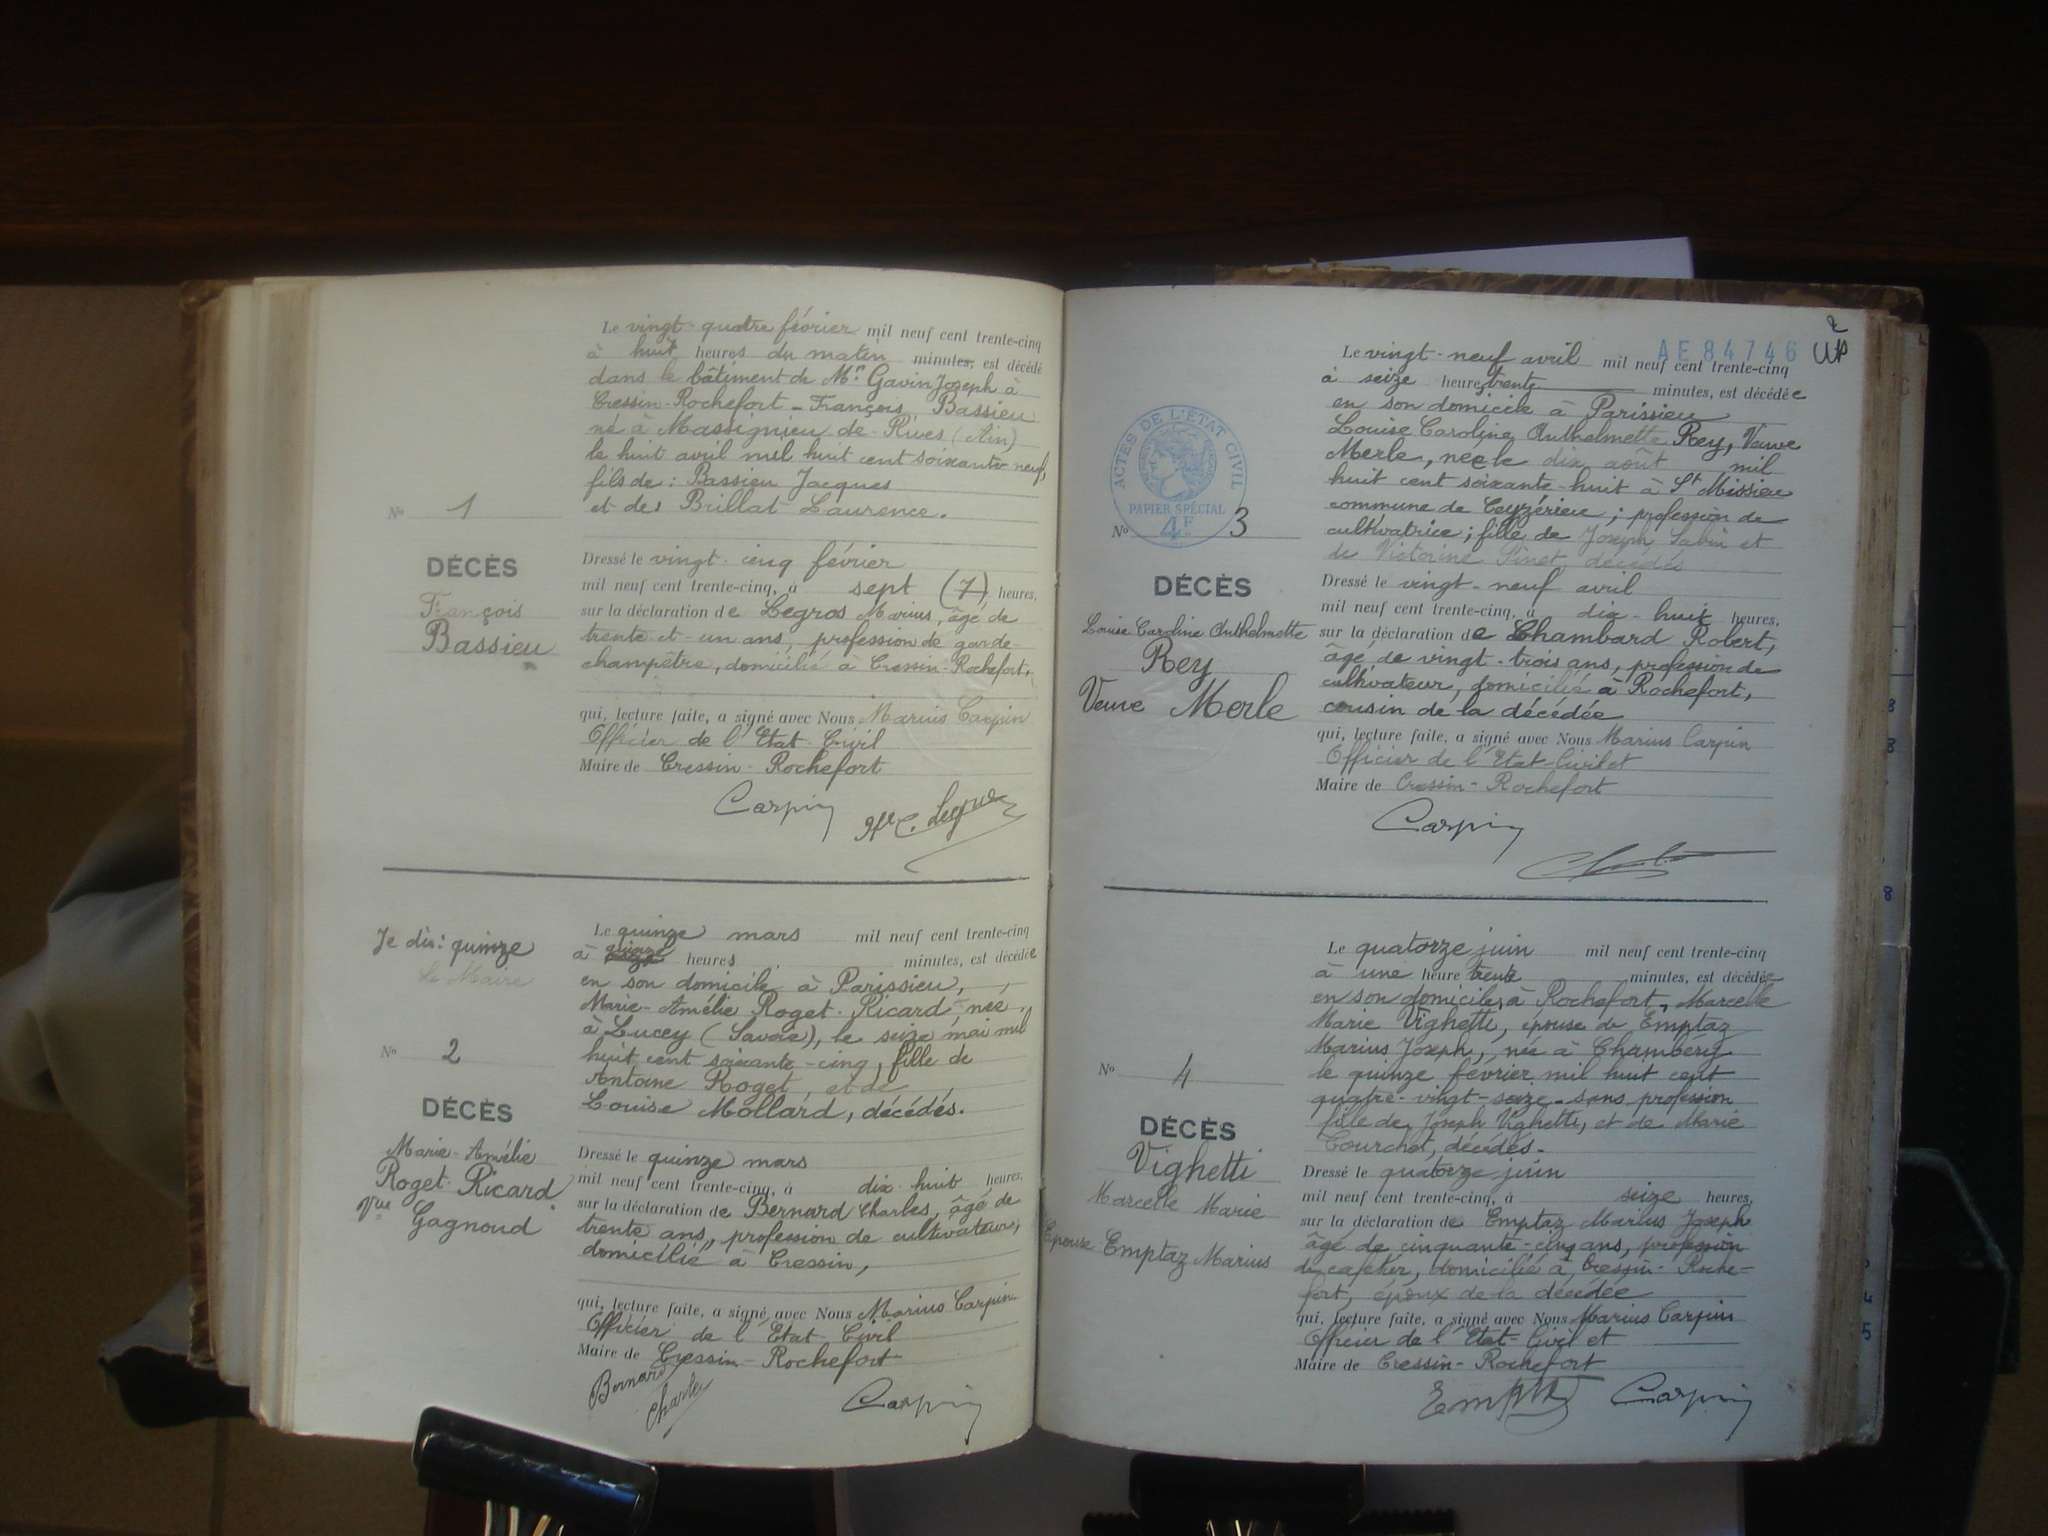 Le vingt-quatre février mil neuf cent trente-cinq
à huit heures du matin minutes, est décédé
dans le bâtiment de Mr Gavin Joseph à
Cressin-Rochefort - François Bassieu
né à Massignieu de Rives (Ain)
le huit avril mil huit cent soixante-neuf,
fils de : Bassieu Jacques
et de : Brillat Laurence.
No 1
DÉCÈS
François
Bassieu
Dressé le vingt-cinq février
mil neuf cent trente-cinq, à sept (7) heures,
sur la déclaration de Legros Marius, âgé de
trente-et-un ans, profession de garde-
champêtre, domicilié à Cressin-Rochefort,
qui, lecture faite, a signé avec Nous Marius Carpin
Officier de l'Etat-Civil
Maire de Cressin-Rochefort
Carpin
Je dis: quinze
le Maire
No 2
DÉCÈS
Marie-Amélie
Roget-Ricard
Vve Gagnoud
Le quinze mars mil neuf cent trente-cinq
à quinze heures minutes, est décédée
en son domicile à Parissieu,
Marie-Amélie Roget-Ricard née
à Lucey (Savoie), le seize mai mil
huit cent soixante-cinq, fille de
Antoine Roget et de
Louise Mollard, décédés.
Dressé le quinze mars
mil neuf cent trente-cinq, à dix-huit heures,
sur la déclaration de Bernard Charles, âgé de
trente ans, profession de cultivateur,
domicilié à Cressin,
qui, lecture faite, a signé avec Nous Marius Carpin
Officier de l'Etat-Civil
Maire de Cressin-Rochefort
Bernard
Charles
Carpin
2
AE 84746
Le vingt-neuf avril mil neuf cent trente-cinq
à seize heure trente minutes, est décédée
en son domicile à Parissieu
Louise Caroline Anthelmette Rey, Veuve
Merle, née le dix août mil
huit cent soixante-huit à St Missieu
commune de Ceyzérieu ; profession de
cultivatrice ; fille de Joseph Sabin et
de Victorine Pinet, décédés
ACTES DE L'ÉTAT CIVIL
PAPIER SPÉCIAL
4F
No 3
DÉCÈS
Louise Caroline Anthelmette
Rey
Veuve Merle
Dressé le vingt-neuf avril
mil neuf cent trente-cinq, à dix-huit heures,
sur la déclaration de Chambard Robert,
âgé de vingt-trois ans, profession de
cultivateur, domicilié à Rochefort,
cousin de la décédée
qui, lecture faite, a signé avec Nous Marius Carpin
Officier de l'Etat-Civil et
Maire de Cressin-Rochefort
Carpin
No 4
DÉCÈS
Vighetti
Marcelle Marie
Epouse Emptaz Marius
Le quatorze juin mil neuf cent trente-cinq
à une heure trente minutes, est décédée
en son domicile, à Rochefort, Marcelle
Marie Vighetti, épouse de Emptaz
Marius Joseph, née à Chambéry
le quinze février mil huit cent
quatre-vingt-seize - sans profession
fille de Joseph Vighetti, et de Marie
Tourchot, décédés.
Dressé le quatorze juin
mil neuf cent trente-cinq, à seize heures,
sur la déclaration de Emptaz Marius Joseph
âgé de cinquante-cinq ans, profession
de cafetier, domicilié à Cressin-Roche-
fort, époux de la décédée
qui, lecture faite, a signé avec Nous Marius Carpin
Officier de l'Etat-Civil et
Maire de Cressin-Rochefort
Emptaz Carpin